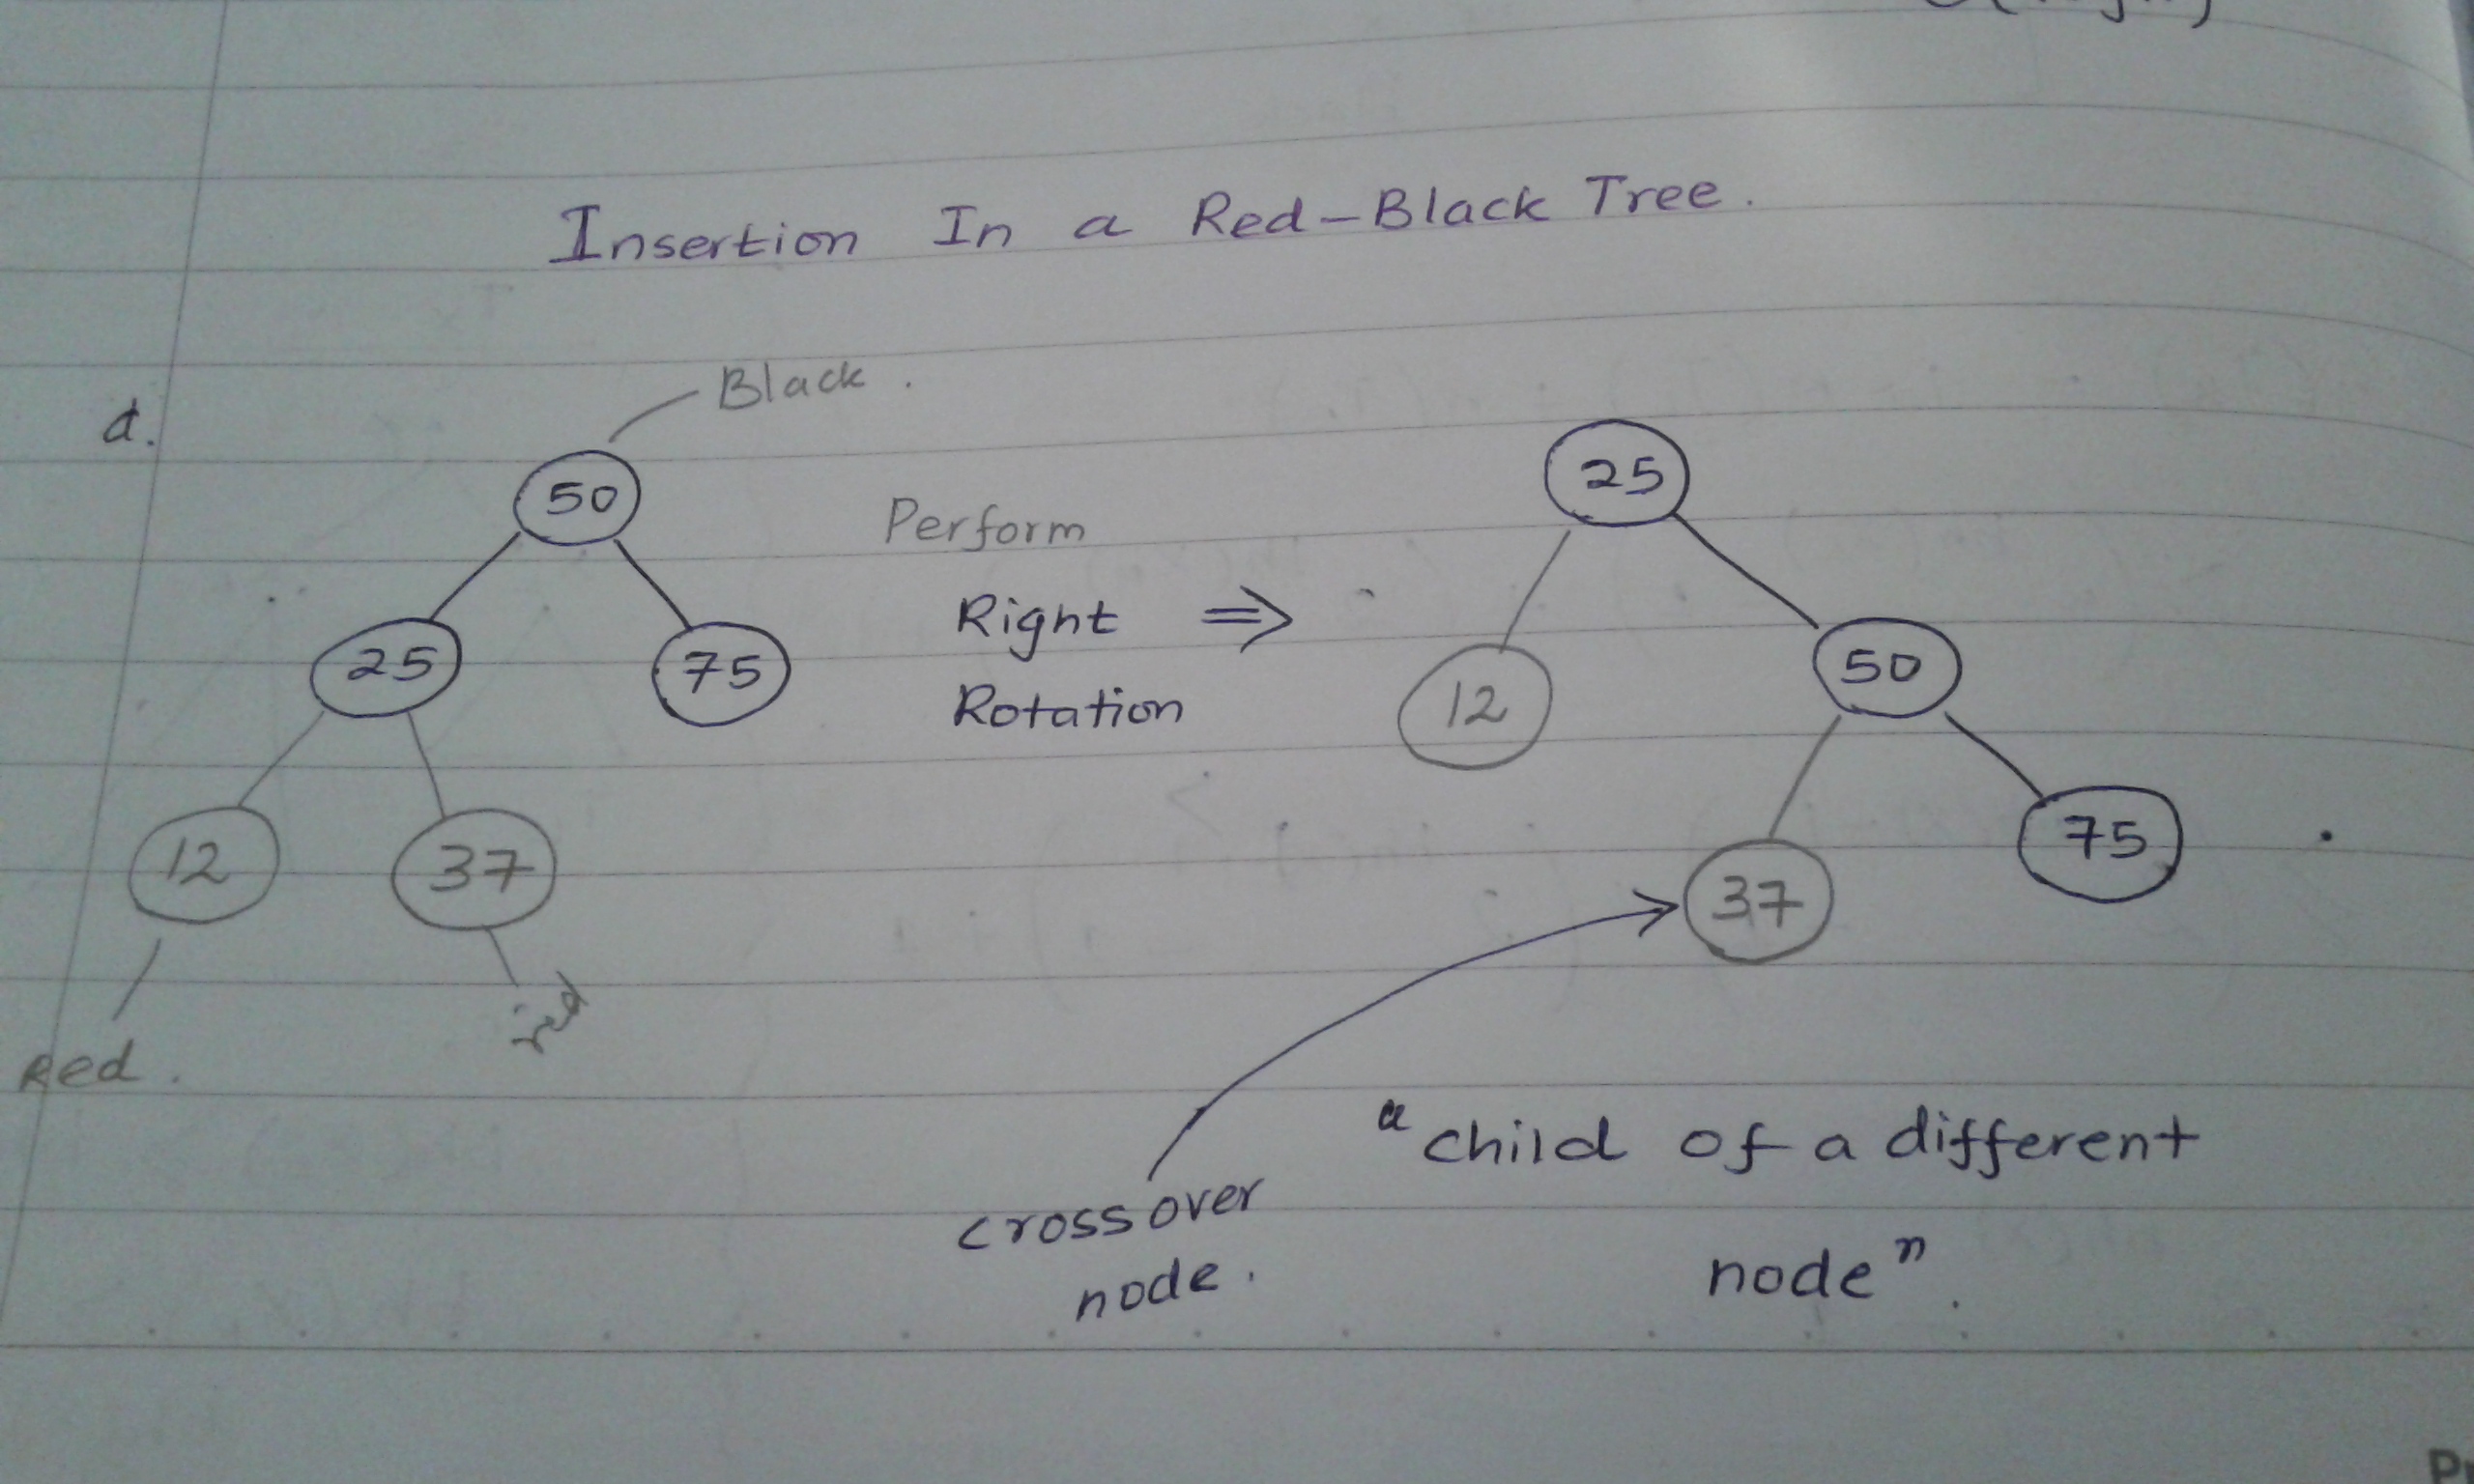 Insertion In a Red-Black Tree.
d.
Black.
50
25 75
12 37
Red.
red
Perform
Right ⇒
Rotation
25
12 50
37 75
crossover
node.
"child of a different
node".